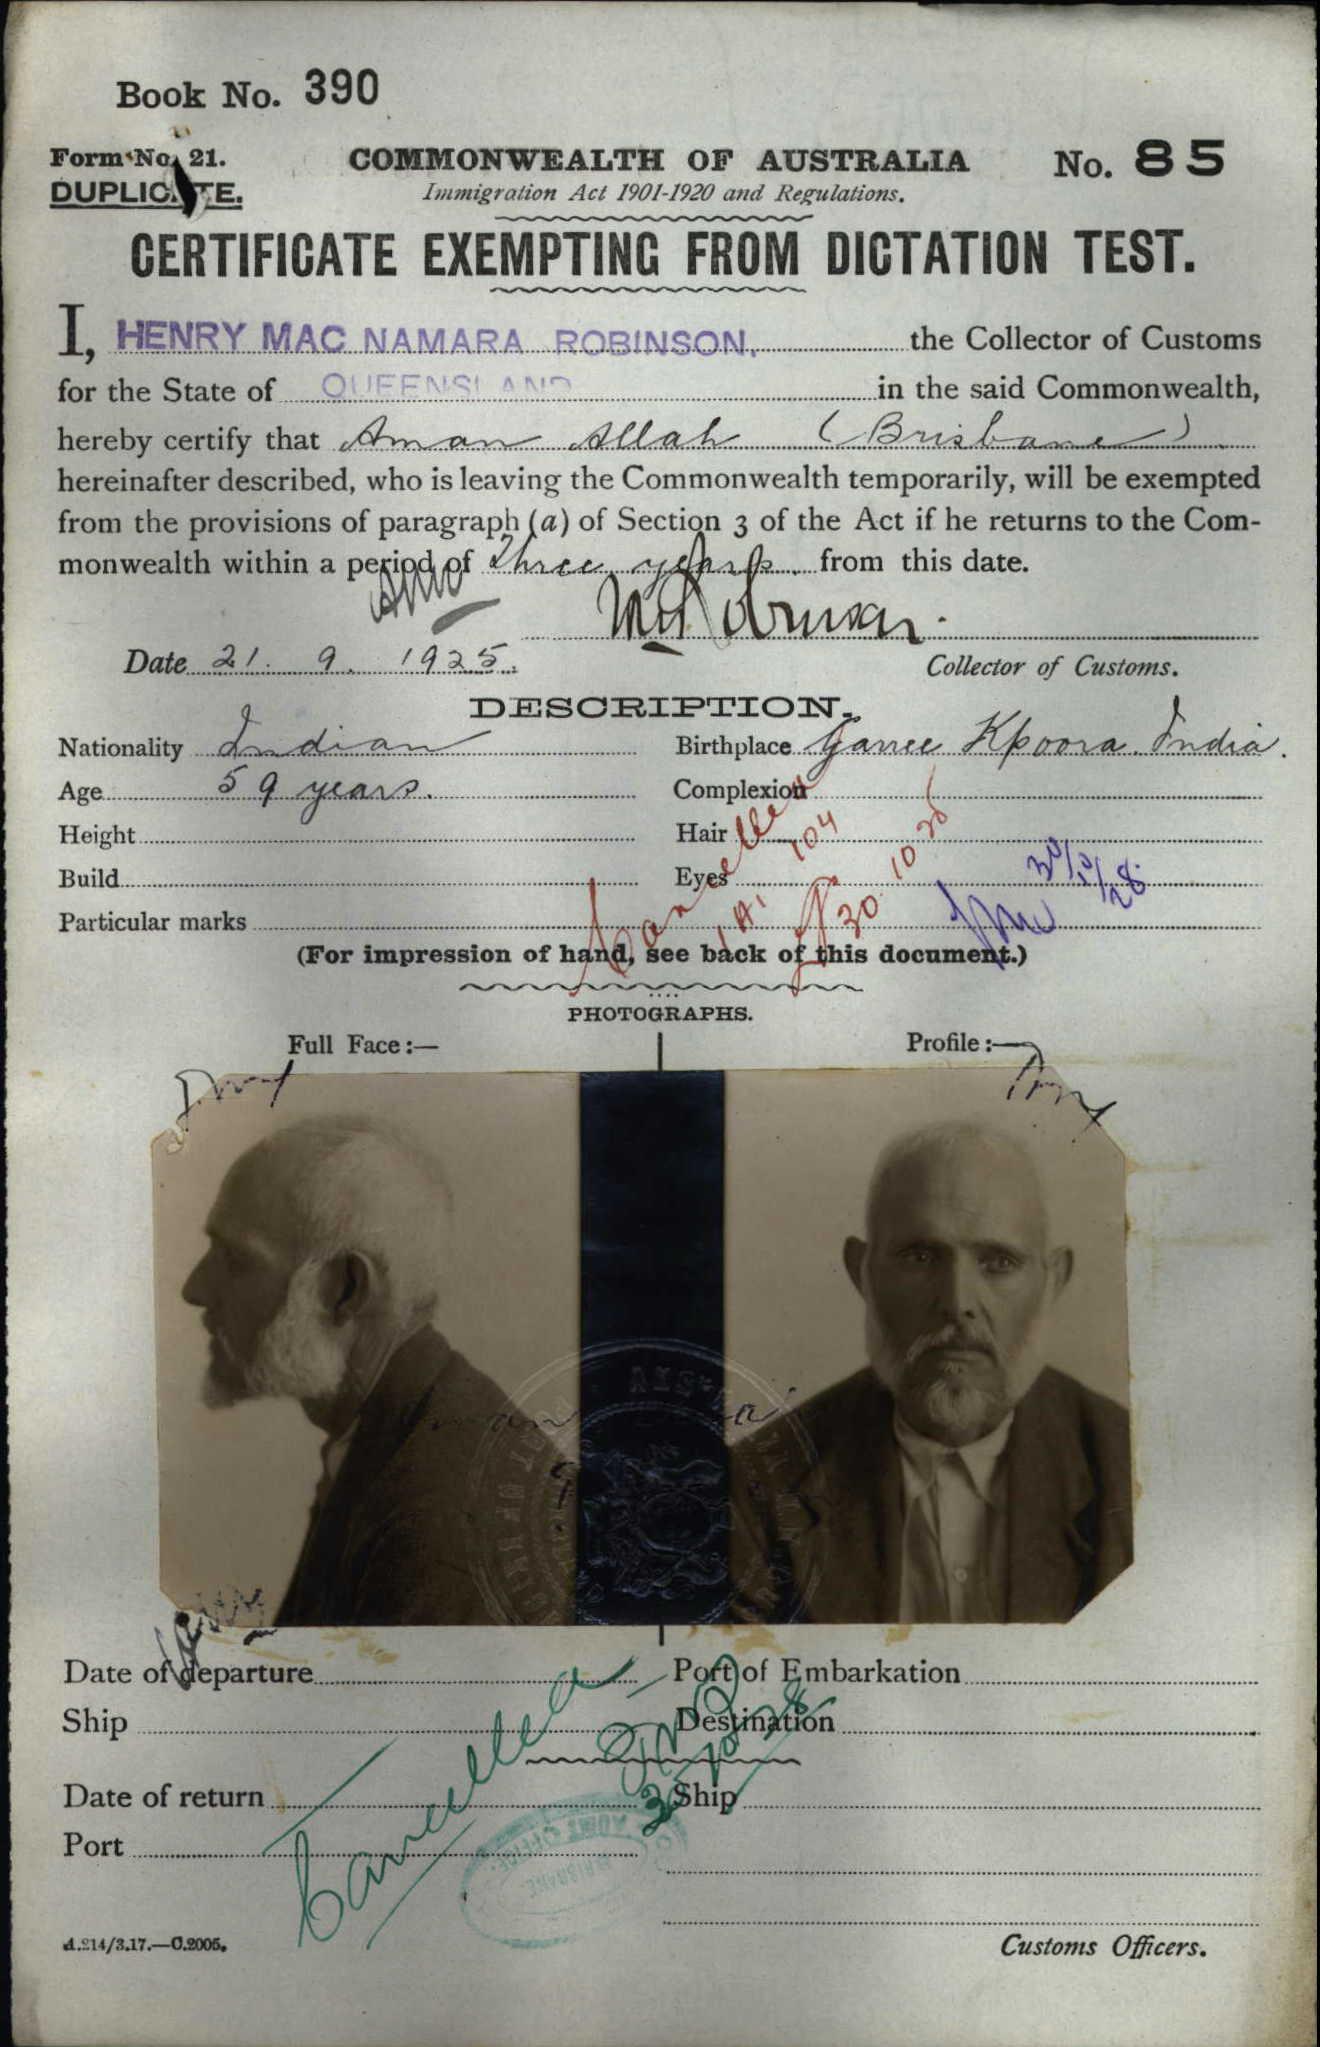 Book No. 390
Form No. 21.
DUPLICATE.
COMMONWEALTH OF AUSTRALIA
No. 85
Immigration Act 1901-1920 and Regulations.
CERTIFICATE EXEMPTING FROM DICTATION TEST.
I, HENRY MAC NAMARA ROBINSON, the Collector of Customs
for the State of QUEENSLAND in the said Commonwealth,
hereby certify that Aman Allah (Brisbane)
hereinafter described, who is leaving the Commonwealth temporarily, will be exempted
from the provisions of paragraph (a) of Section 3 of the Act if he returns to the Com-
monwealth within a period of Three years. from this date.
Date 21. 9. 1925. Collector of Customs.
DESCRIPTION.
Nationality Indian Birthplace Janee Kpoora. India.
Age 59 years. Complexion
Height Hair
Build Eyes
Particular marks
Cancelled
104
30 10 28
30/10/28
(For impression of hand, see back of this document.)
PHOTOGRAPHS.
Full Face:— Profile:—
Date of departure Port of Embarkation
Ship Destination
Cancelled
Date of return Ship
Port
BRISBANE
A.214/3.17.—C.2005.
Customs Officers.